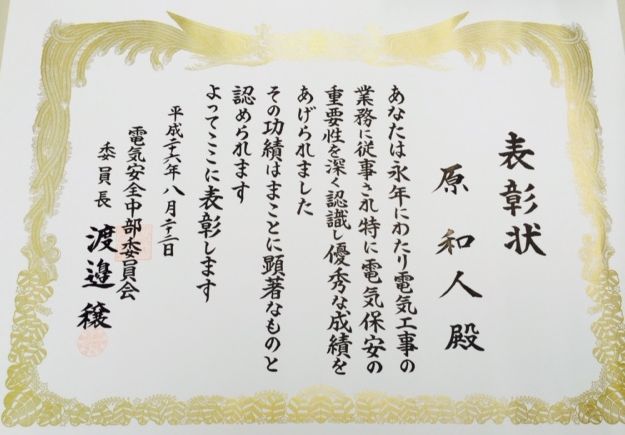 表彰状
原和人殿
あなたは永年にわたり電気工事の
業務に従事され特に電気保安の
重要性を深く認識し優秀な成績を
あげられました
その功績はまことに顕著なものと
認められます
よってここに表彰します
平成二十六年八月二十二日
電気安全中部委員会
委員長 渡邉穣